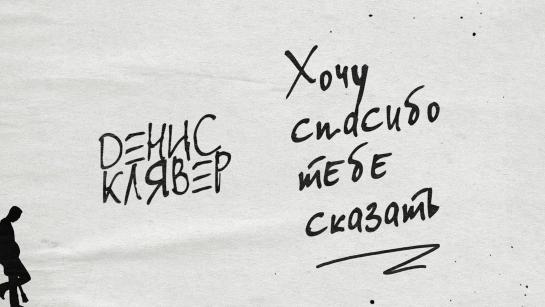 ДЕНИС
КЛЯВЕР
Хочу
спасибо
тебе
сказать